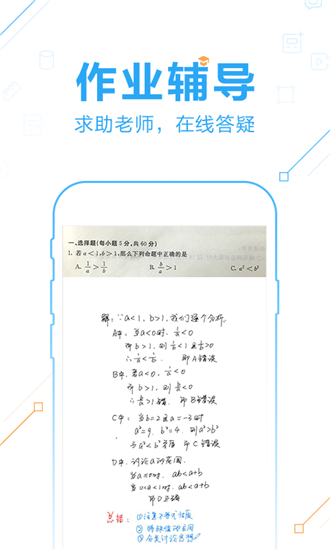 作业辅导
求助老师，在线答疑
一、选择题(每小题5分，共60分)
1. 若a<1,b>1,那么下列命题中正确的是
A. 1/a>1/b B. b/a>1 C. a²<b²
解: ∵a<1, b>1, 我们逐个分析
A中: 当a<0时, 1/a<0
即b>1, 则 1/b<1且1/b>0
∴1/a<1/b. 即A错误
B中, 若a<0, 1/a<0
即b>1, 则 b/a<0
∴b/a>1错. 即B错误
C中: 当b=2且a=-3时
a²=9, b²=4. 则a²>b²
与a²<b²矛盾 即C错误
D中. 讨论a的范围
当a≤0时. ab<a+b
当0<a<1时. ab<a+b
即D正确
②特殊值的应用
③分类讨论思想